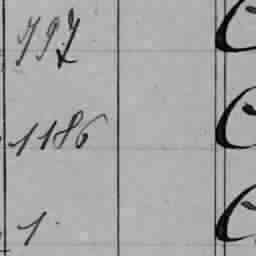 797
1186
1.